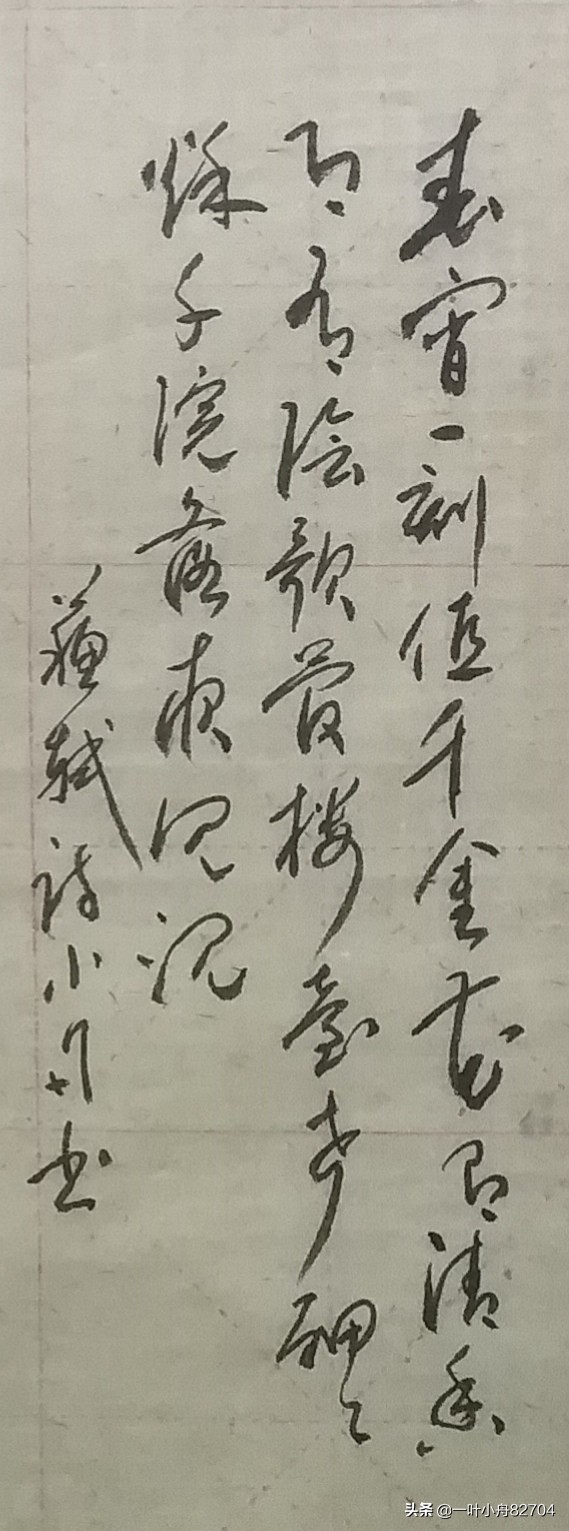 春宵一刻值千金花有清香
月有陰歌管楼臺声細々
秋千院落夜沉沉
蘇軾詩小舟书
头条 @一叶小舟82704